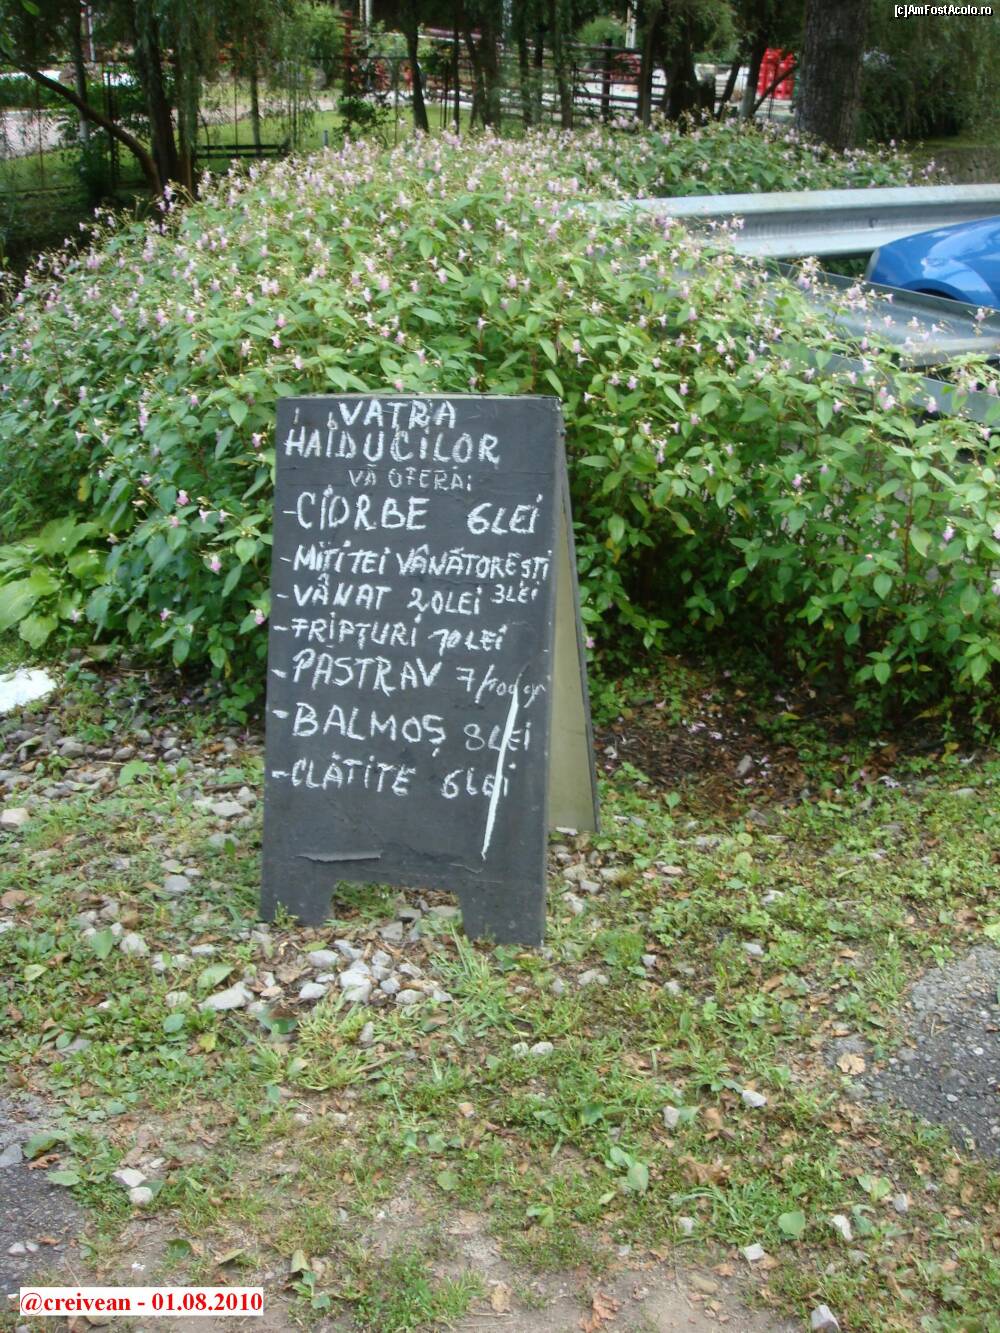 [c]AmFostAcolo.ro
VATRA
HAIDUCILOR
VĂ OFERĂ:
-CIORBE 6LEI
-MITITEI VÂNĂTOREȘTI
3LEI
-VÂNAT 20LEI
-FRIPTURI 10LEI
-PĂSTRAV 7/100gr
-BALMOȘ 8LEI
-CLĂTITE 6LEI
@creivean - 01.08.2010